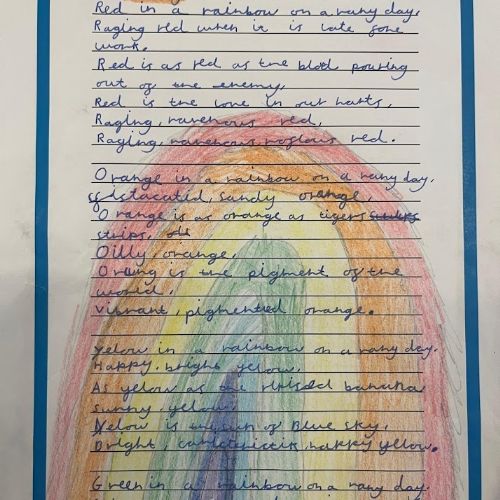 Red in a rainbow on a rany day,
Raging red when it is late fore
work.
Red is as red as the blod pouring
out of the enemy,
Red is the love in out harts,
Raging, ravenous red,
Raging, ravenous red.
Orange in a rainbow on a rany day,
sandy orange,
Orange is as orange as tigers
strips,
Oilly, orange,
Orang is the pigment of the
world,
Vibrant, pigmented orange.
Yelow in a rainbow on a rany day.
Happy, bright yelow,
As yelow as one banana
sunny, yelow,
Yelow is the sun of Blue sky,
Bright, happy yelow.
Green in a rainbow on a rany day.